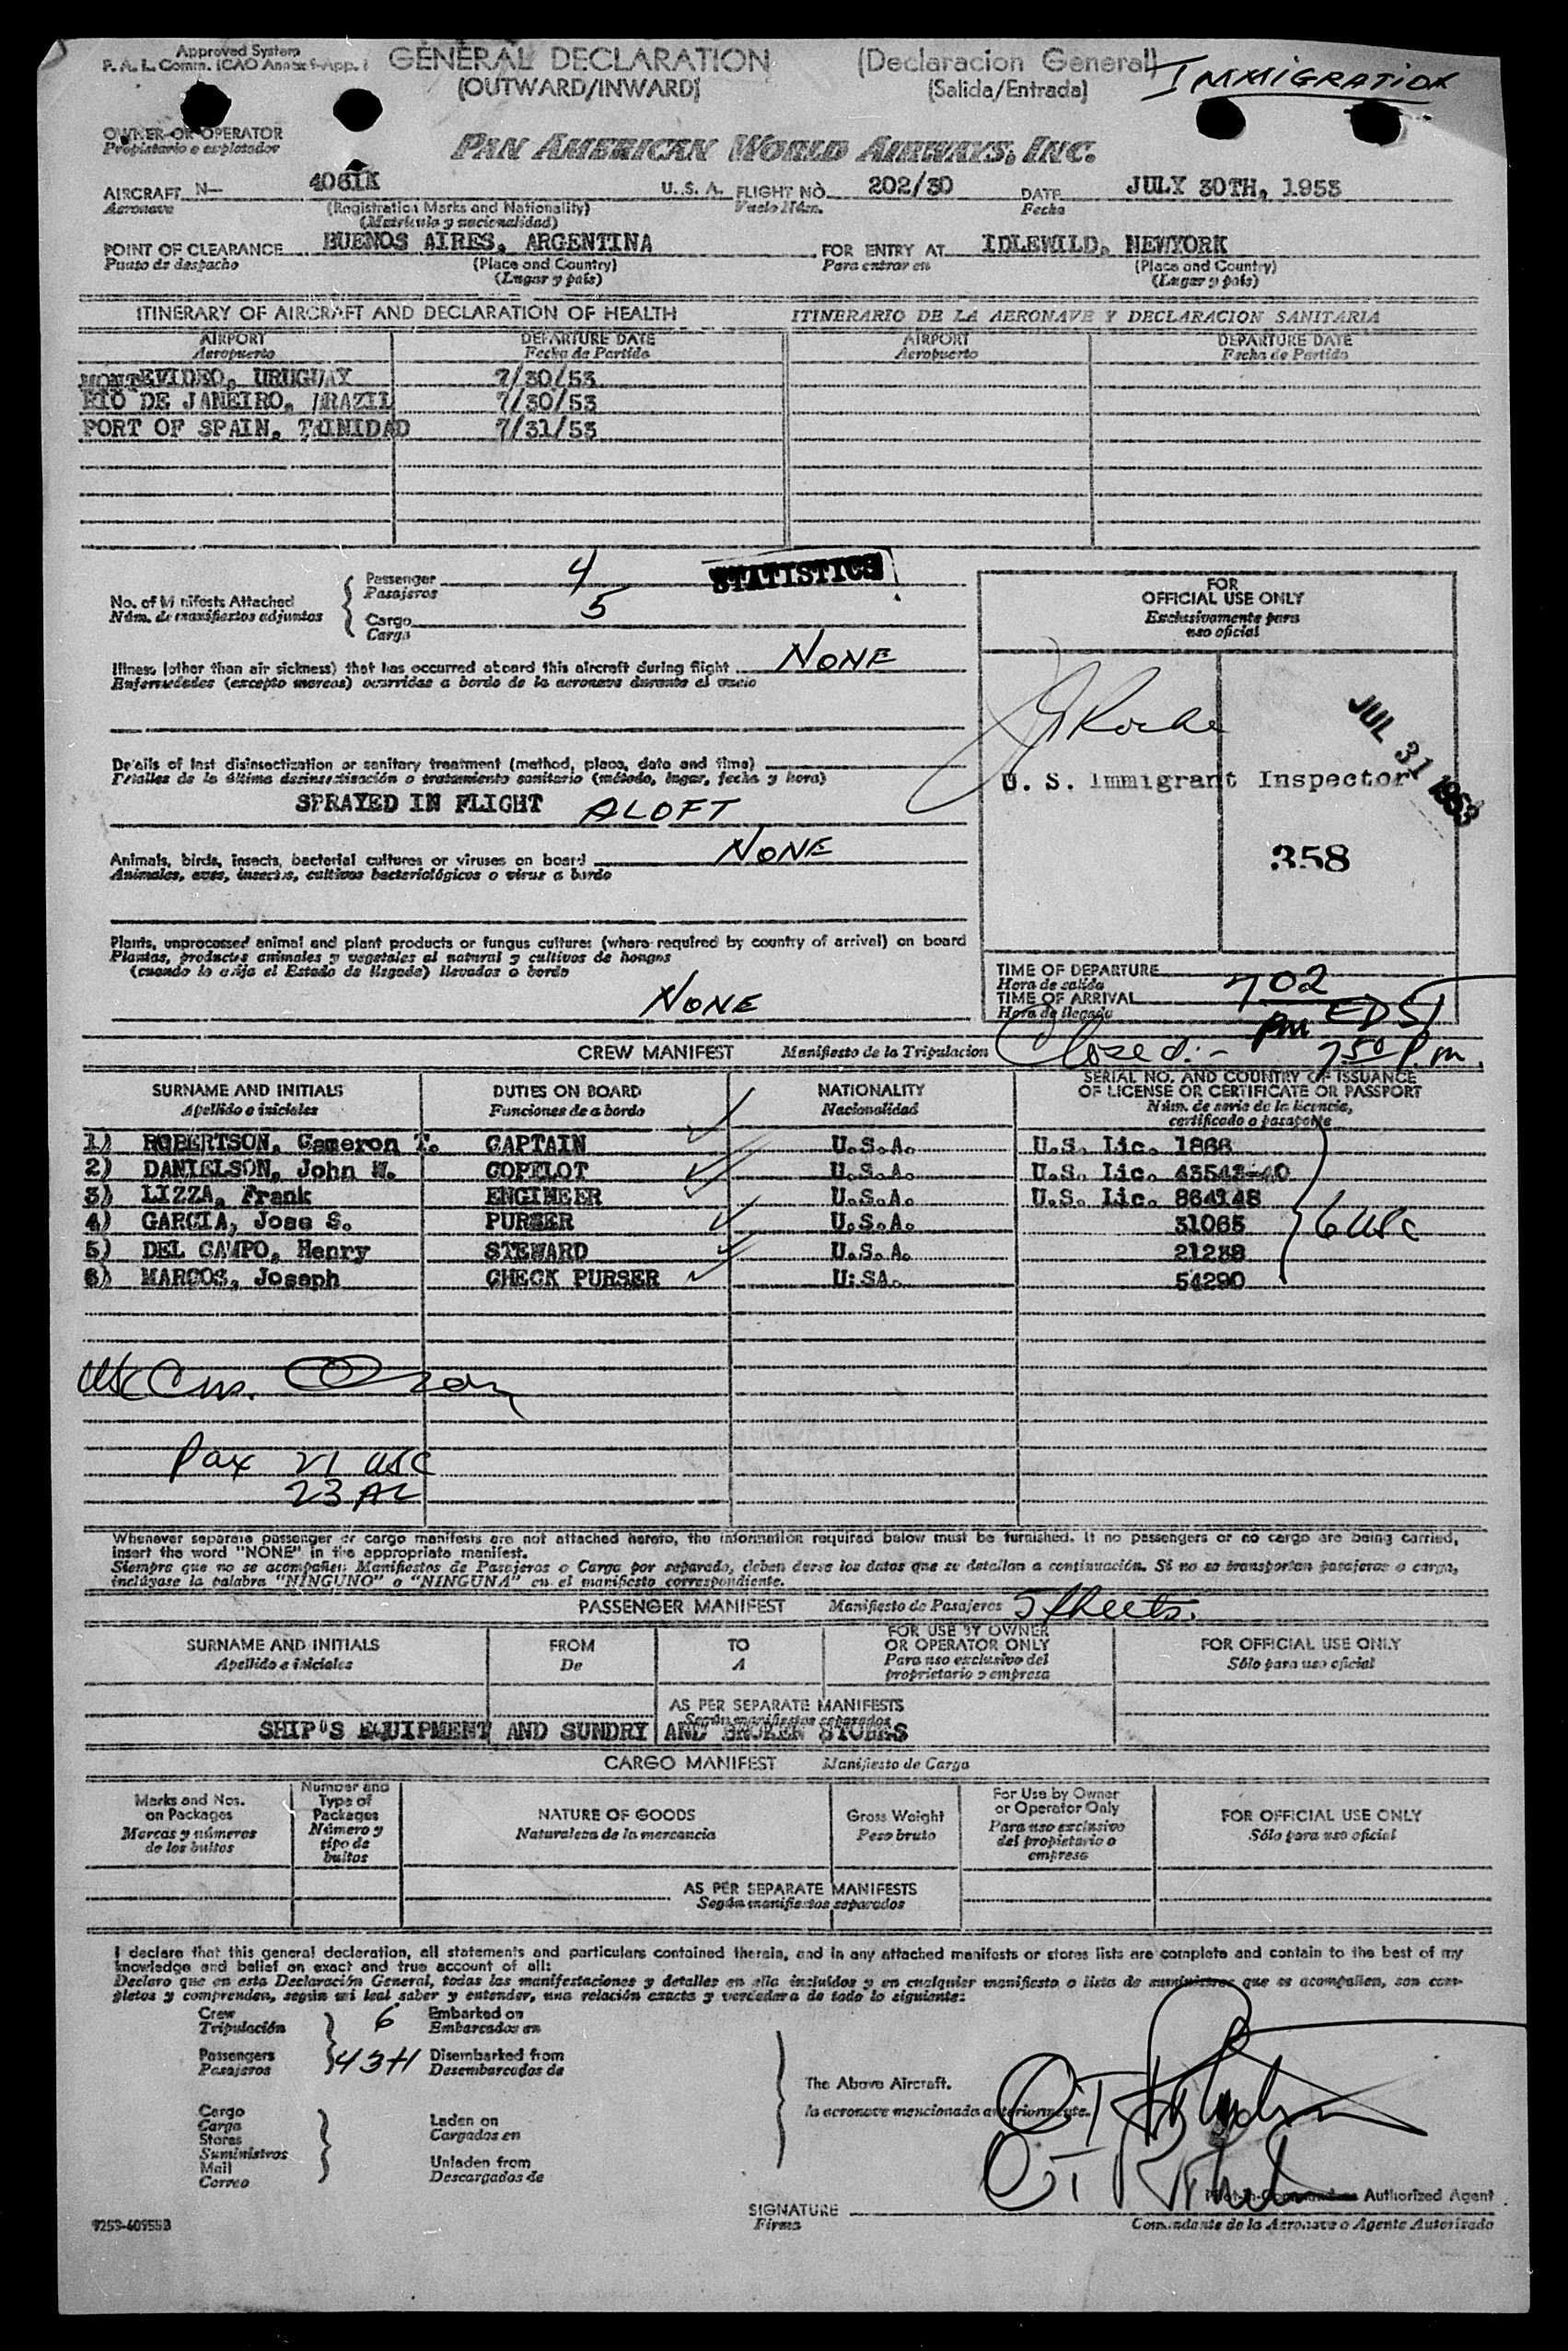 Approved System
F. A. L. Comm. ICAO Annex 9-App. 1
GENERAL DECLARATION
(Declaracion General)
IMMIGRATION
(OUTWARD/INWARD)
(Salida/Entrada)
OWNER OR OPERATOR
Propietario o explotador
PAN AMERICAN WORLD AIRWAYS, INC.
AIRCRAFT N— 4061K U. S. A. FLIGHT NO. 202/30 DATE JULY 30TH, 1953
Aeronave (Registration Marks and Nationality) Vuelo Núm. Fecha
(Matrícula y nacionalidad)
POINT OF CLEARANCE BUENOS AIRES, ARGENTINA FOR ENTRY AT IDLEWILD, NEWYORK
Punto de despacho (Place and Country) Para entrar en (Place and Country)
(Lugar y país) (Lugar y país)
ITINERARY OF AIRCRAFT AND DECLARATION OF HEALTH ITINERARIO DE LA AERONAVE Y DECLARACION SANITARIA
AIRPORT DEPARTURE DATE AIRPORT DEPARTURE DATE
Aeropuerto Fecha de Partida Aeropuerto Fecha de Partida
MONTEVIDEO, URUGUAY 7/30/53
RIO DE JANEIRO, BRAZIL 7/30/53
PORT OF SPAIN, TRINIDAD 7/31/53
No. of Manifests Attached
Núm. de manifiestos adjuntos
Passenger 4
Pasajeros
Cargo 5
Carga
STATISTICS
FOR
OFFICIAL USE ONLY
Exclusivamente para
uso oficial
Illness (other than air sickness) that has occurred aboard this aircraft during flight NONE
Enfermedades (excepto mareos) ocurridas a bordo de la aeronave durante el vuelo
JUL 31 1953
U. S. Immigrant Inspector
358
Details of last disinsectization or sanitary treatment (method, place, date and time)
Detalles de la última desinsectisación o tratamiento sanitario (método, lugar, fecha y hora)
SPRAYED IN FLIGHT ALOFT
Animals, birds, insects, bacterial cultures or viruses on board NONE
Animales, aves, insectos, cultivos bacteriológicos o virus a bordo
Plants, unprocessed animal and plant products or fungus cultures (where required by country of arrival) on board
Plantas, productos animales y vegetales al natural y cultivos de hongos
(cuando lo exija el Estado de llegada) llevados a bordo
NONE
TIME OF DEPARTURE
Hora de salida
TIME OF ARRIVAL 702 pm EDST
Hora de llegada
Closed:- 750 P.m.
CREW MANIFEST Manifiesto de la Tripulacion
SURNAME AND INITIALS DUTIES ON BOARD NATIONALITY SERIAL NO. AND COUNTRY OF ISSUANCE
OF LICENSE OR CERTIFICATE OR PASSPORT
Apellido e iniciales Funciones de a bordo Nacionalidad Núm. de serie de la licencia,
certificado o pasaporte
1) ROBERTSON, Cameron T. CAPTAIN U.S.A. U.S. Lic. 1868
2) DANIELSON, John W. COPELOT U.S.A. U.S. Lic. 43543-40
3) LIZZA, Frank ENGINEER U.S.A. U.S. Lic. 864148
4) GARCIA, Jose S. PURSER U.S.A. 31065
5) DEL CAMPO, Henry STEWARD U.S.A. 21289
6) MARCOS, Joseph CHECK PURSER U:SA. 54290
6 USC
Pax 21 USC
23 AL
Whenever separate passenger or cargo manifests are not attached hereto, the information required below must be furnished. If no passengers or no cargo are being carried,
insert the word "NONE" in the appropriate manifest.
Siempre que no se acompañen Manifiestos de Pasajeros o Carga por separado, deben darse los datos que se detallan a continuación. Si no se transportan pasajeros o carga,
inclúyase la palabra "NINGUNO" o "NINGUNA" en el manifiesto correspondiente.
PASSENGER MANIFEST Manifiesto de Pasajeros 5 Sheets.
SURNAME AND INITIALS FROM TO FOR USE BY OWNER
OR OPERATOR ONLY FOR OFFICIAL USE ONLY
Apellido e iniciales De A Para uso exclusivo del
propietario o empresa Sólo para uso oficial
AS PER SEPARATE MANIFESTS
Según manifiestos separados
SHIP'S EQUIPMENT AND SUNDRY AND BROKEN STORES
CARGO MANIFEST Manifiesto de Carga
Marks and Nos.
on Packages
Marcas y números
de los bultos
Number and
Type of
Packages
Número y
tipo de
bultos
NATURE OF GOODS
Naturaleza de la mercancia
Gross Weight
Peso bruto
For Use by Owner
or Operator Only
Para uso exclusivo
del propietario o
empresa
FOR OFFICIAL USE ONLY
Sólo para uso oficial
AS PER SEPARATE MANIFESTS
Según manifiestos separados
I declare that this general declaration, all statements and particulars contained therein, and in any attached manifests or stores lists are complete and contain to the best of my
knowledge and belief an exact and true account of all:
Declaro que en esta Declaración General, todas las manifestaciones y detalles en ella incluidos y en cualquier manifiesto o lista de suministros que se acompañen, son com-
pletos y comprenden, según mi leal saber y entender, una relación exacta y verdadera de todo lo siguiente:
Crew 6 Embarked on
Tripulación Embarcados en
Passengers 43+1 Disembarked from
Pasajeros Desembarcados de
The Above Aircraft.
la aeronave mencionada anteriormente.
Cargo
Carga
Stores
Suministros
Mail
Correo
Laden on
Cargados en
Unladen from
Descargados de
SIGNATURE
Firma
Pilot-in-Command or Authorized Agent
Comandante de la Aeronave o Agente Autorizado
9253-40955B